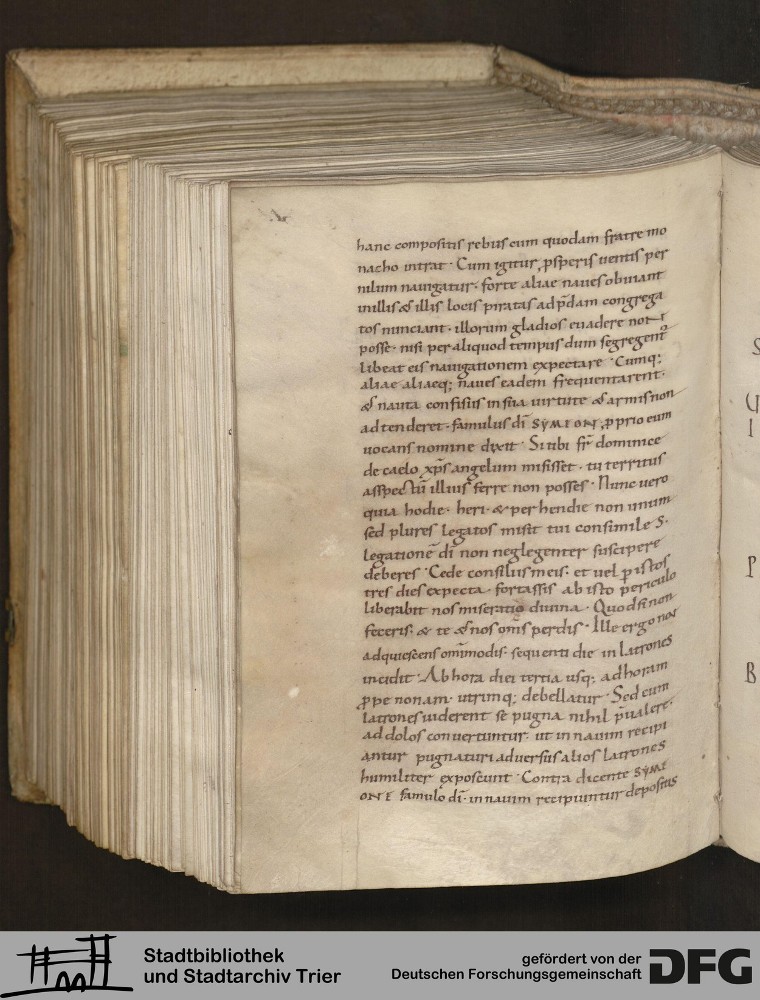 hanc compositis rebus cum quodam fratre mo
nacho intrat · Cum igitur ꝓsperis uentis per
nilum nauigatur · forte aliae naues obuiant
inillis & illis locis piratas adp̄dam congrega
tos nunciant · illorum gladios euadere non
posse · nisi per aliquod tempus dum segregent᷑
libeat eis nauigationem expectare · Cumq;
aliae aliaeq; naues eadem frequentarent ·
& nauta confisus insua uirtute & armis non
adtenderet · famulus dī SYMEON ꝓprio eum
uocans nomine dixit · Si tibi fr̄ dominice
de caelo xp̄s angelum misisset · tu territus
asspectū illius ferre non posses · Nunc uero
quia hodie · heri · & perhendie non unum
sed plures legatos misit tui consimiles ·
legationē dī non neglegenter suscipere
deberes · Cede consiliis meis · et uel ꝑ istos
tres dies expecta · fortassis ab isto periculo
liberabit nos miseratio diuina · Quod si non
feceris · & te & nos om̄s perdis · Ille ergo non
adquiescens om̄imodis · sequenti die in latrones
incidit · Ab hora diei tertia usq; ad horam
ꝓpe nonam · utrimq; debellatur · Sed cum
latrones uiderent se pugna nihil p̄ualere ·
ad dolos conuertuntur · ut in nauim recipi
antur pugnaturi aduersus alios latrones
humiliter exposcunt · Contra dicente SYME
ONE famulo dī · in nauim recipiuntur depositis
S
U
I
P
B
Stadtbibliothek
und Stadtarchiv Trier
gefördert von der
Deutschen Forschungsgemeinschaft
DFG